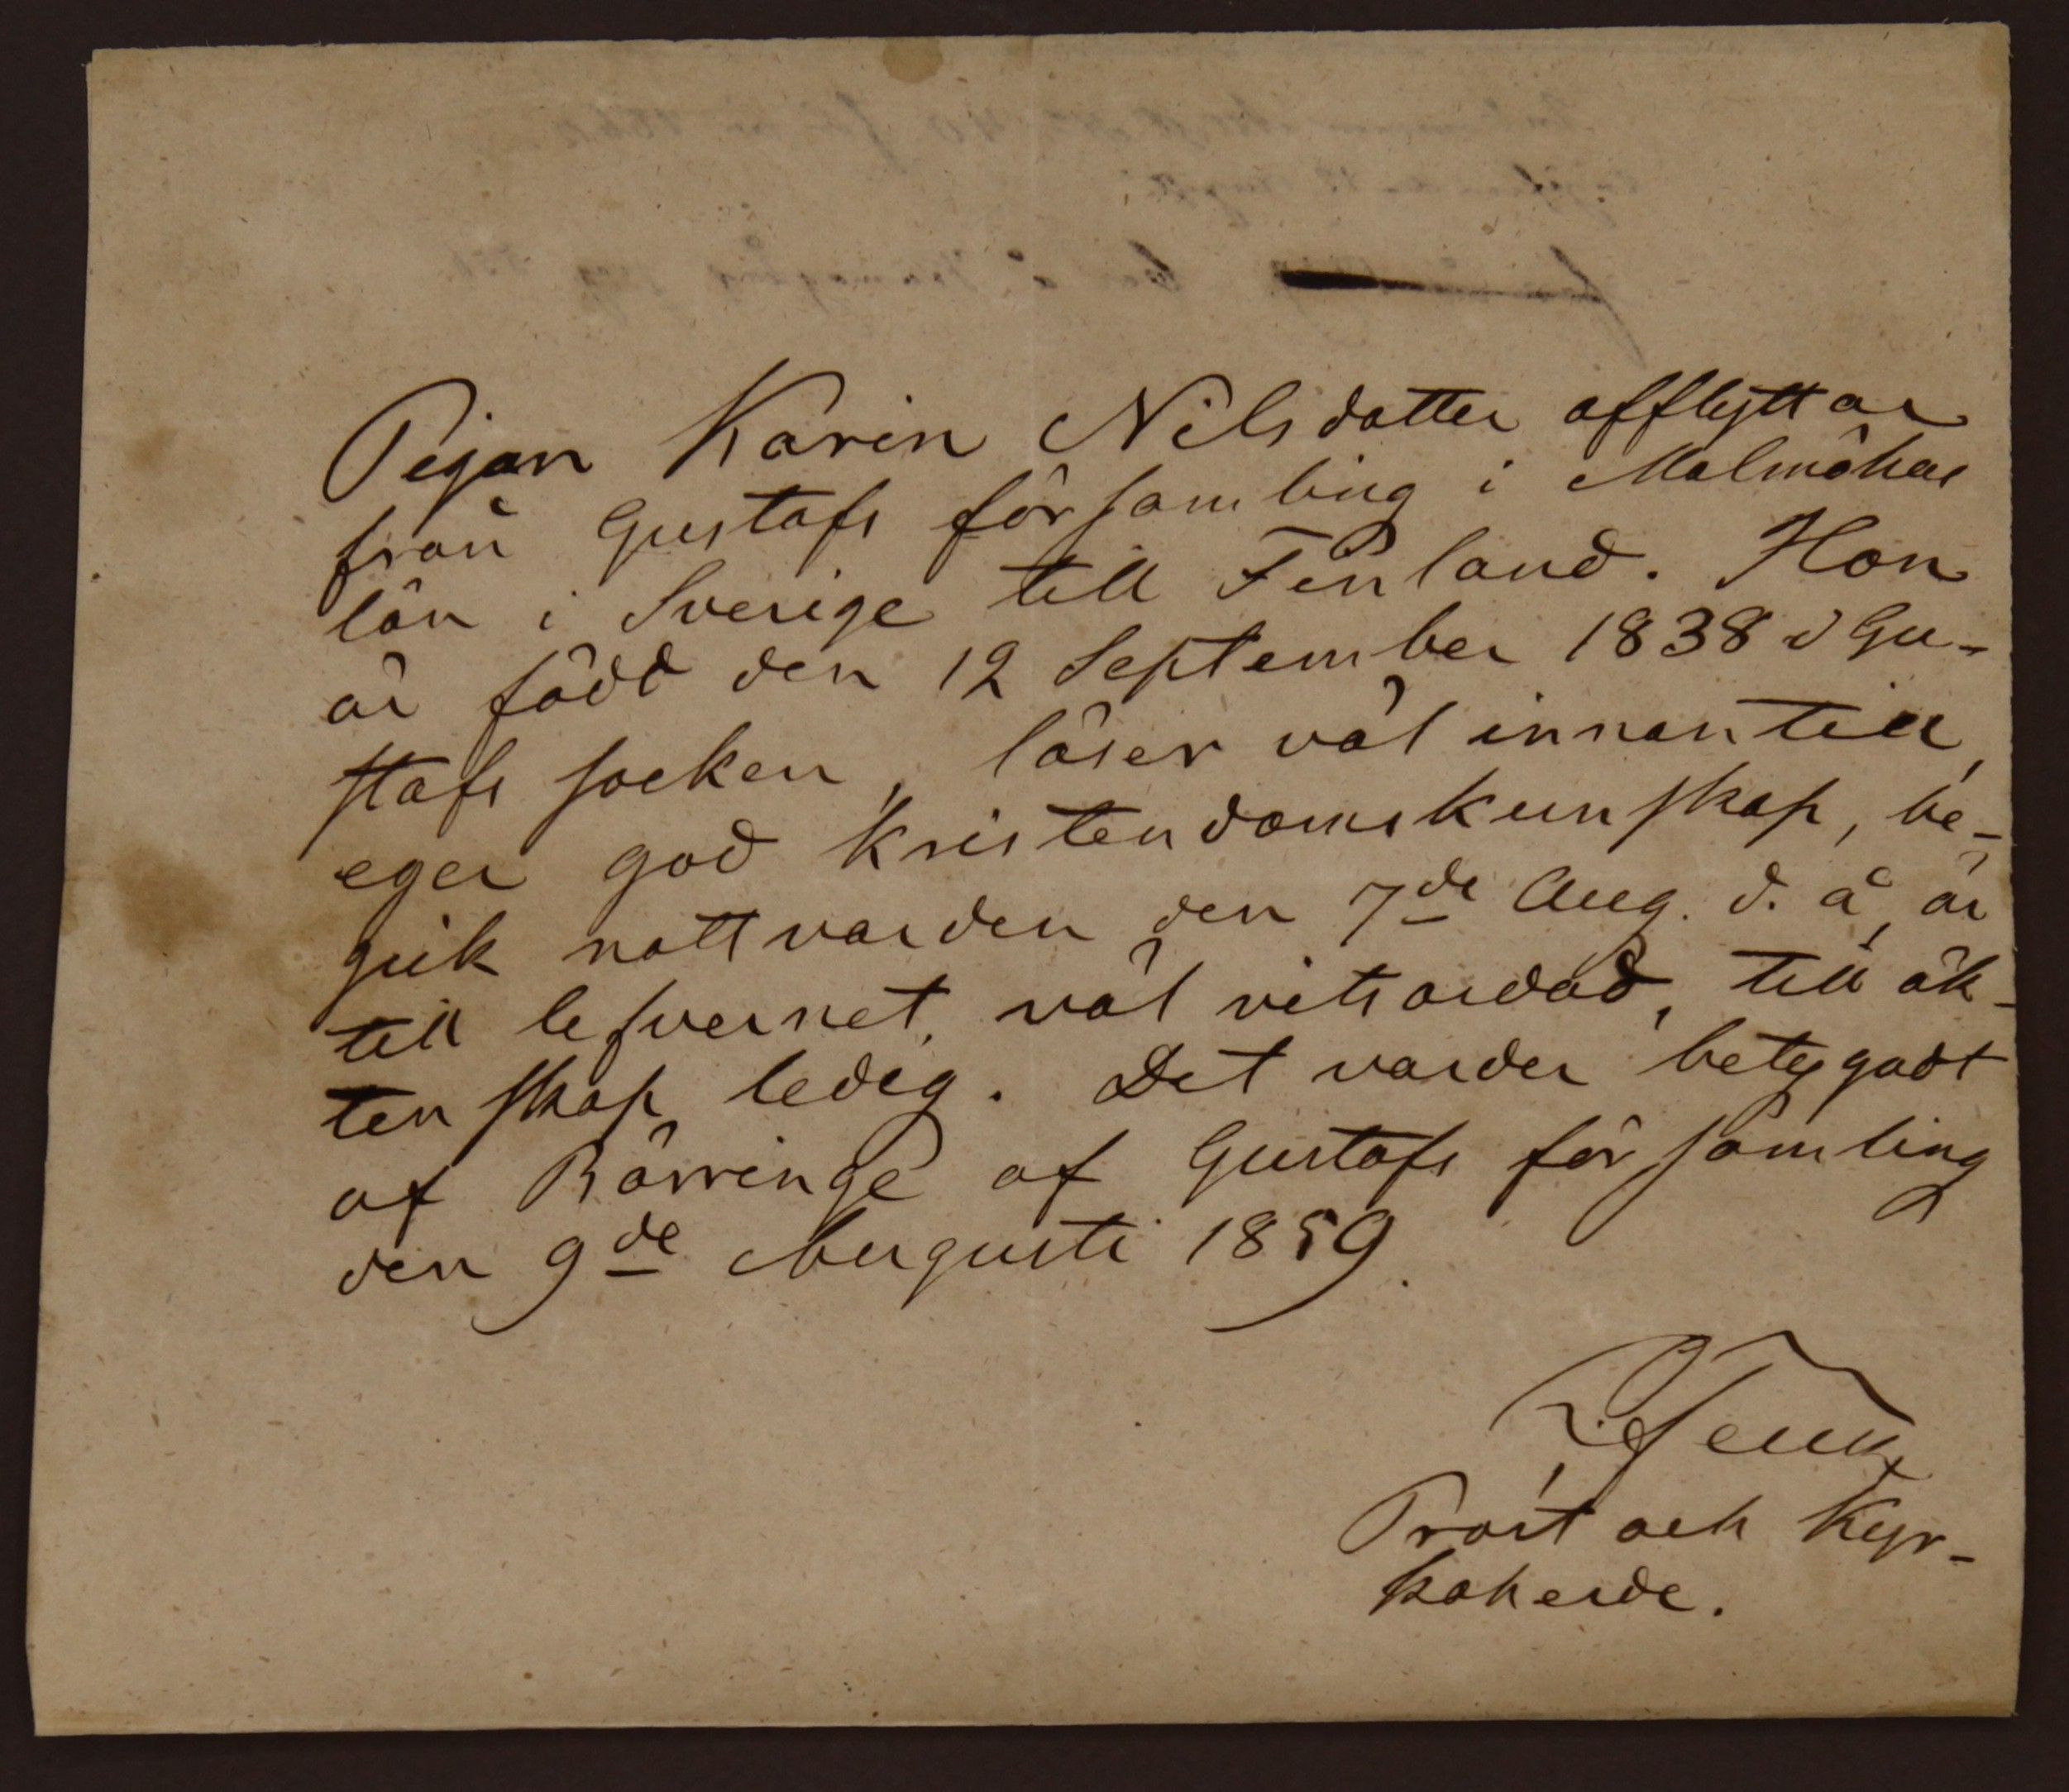 Pigan Karin Nilsdotter afflyttar
från Gustafs församling i Malmöhus
län i Sverige till Finland. Hon
är född den 12 September 1838 i Gu-
stafs socken, läser väl innantill,
eger god kristendomskunskap, be-
gick nattvarden den 7de Aug. d. å, är
till lefvernet väl vitsordad, till äk-
tenskap ledig. Det varder betygadt
af Börringe af Gustafs församling
den 9de Augusti 1859.
Prost och Kyr-
koherde.